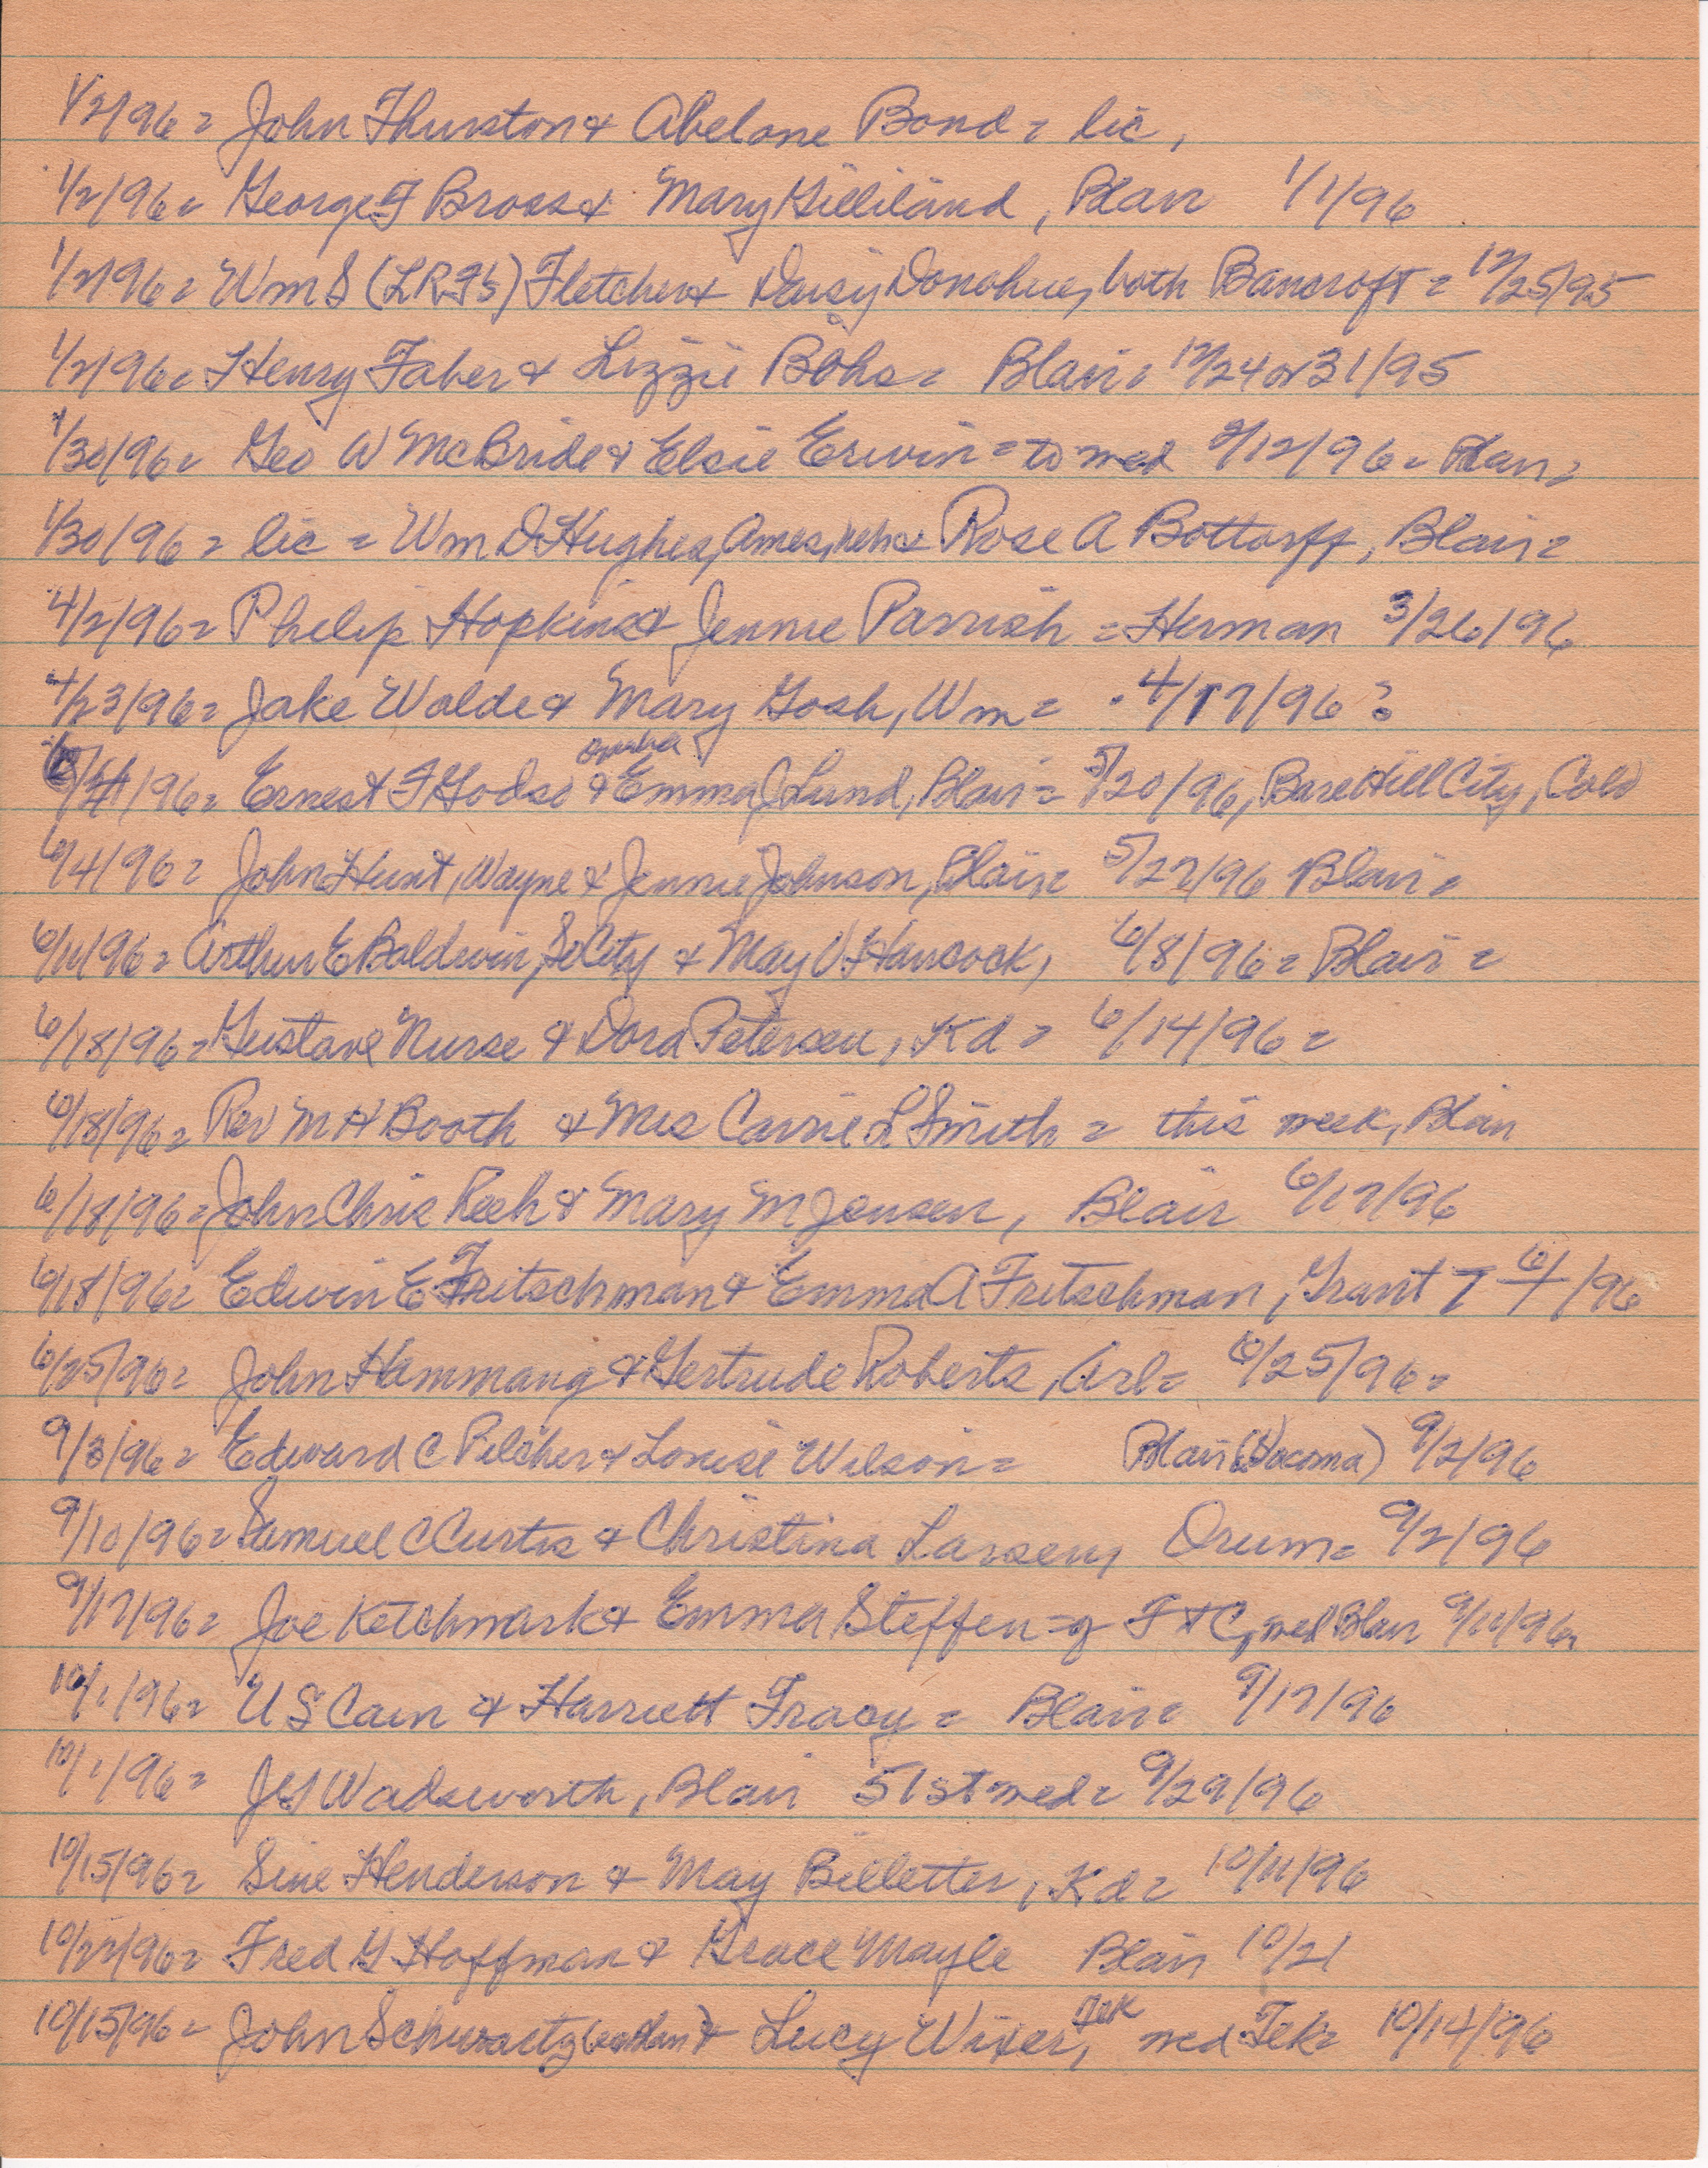 1/2/96 = John Thurston & Abelone Bond = lic,
1/2/96 = George F Bross & Mary Gilliland, Blair 1/1/96
1/2/96 = Wm S (LR) Fletcher & Daisy Donohue, both Bancroft = 12/25/95
1/2/96 = Henry Faber & Lizzie Böhs = Blair = 12/24 or 31/95
1/30/96 = Geo W McBride & Elsie Erwin = to wed 2/12/96 = Blair =
1/30/96 = lic = Wm D Hughes, Ames, Neb & Rose A Bottorff, Blair =
4/2/96 = Philip Hopkins & Jennie Parrish = Herman 3/26/96
4/23/96 = Jake Walde & Mary Gosh, Wm = 4/17/96 ?
Omaha
/96 = Ernest F Godso & Emma J Lund, Blair = 5/20/96, Hill City, Colo
6/4/96 = John Hunt, Wayne & Jennie Johnson, Blair = 5/27/96 Blair =
6/11/96 = Arthur E Baldwin, So City & May V Hancock, 6/8/96 = Blair =
6/18/96 = Gustave Nurse & Dora Petersen, Kd = 6/14/96 =
6/18/96 = Rev M H Booth & Mrs Carrie L Smith = this week, Blair
6/18/96 = John Chris Reeh & Mary M Jensen, Blair 6/17/96
6/18/96 = Edwin E Fritschman & Emma A Fritschman, Grant T 6/ /96
6/25/96 = John Hammang & Gertrude Roberts, Arl = 6/25/96 =
9/3/96 = Edward C Pilcher & Louise Wilson = Blair (Vacoma) 9/2/96
9/10/96 = Samuel C Curtis & Christina Larsen, Orum = 9/2/96
9/17/96 = Joe Ketchmark & Emma Steffen = of Ft C, wed Blair 9/11/96
10/1/96 = U S Cain & Harriett Tracy = Blair = 9/17/96
10/1/96 = Wadsworth, Blair 51st wed = 9/29/96
10/15/96 = Sine Henderson & May Billetter, Kd = 10/11/96
10/22/96 = Fred G Hoffman & Grace Mayle Blair 10/21
10/15/96 = John Schwartz & Lucy Wixer, Tek wed Tek = 10/14/96